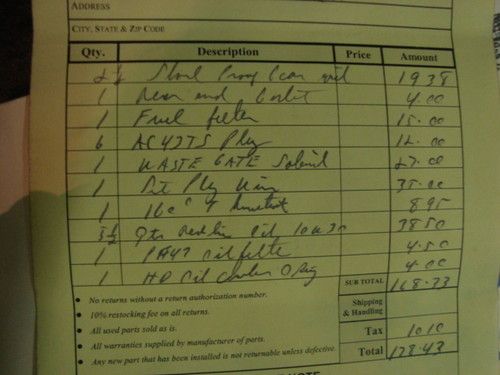 ADDRESS
CITY, STATE & ZIP CODE
Qty. Description Price Amount
2½ Shock Proof Gear oil 19 38
1 Rear end Gasket 4.00
1 Fuel filter 15.00
6 AC43TS Plug 12.00
1 WASTE GATE Solenoid 27.00
1 Set Plug Wires 35.00
1 160° 8 95
Qts Redline Oil 10w30 38 50
1 PF47 oil filter 4.50
1 HD Oil Cooler O Ring 4.00
SUB TOTAL 168.33
• No returns without a return authorization number.
• 10% restocking fee on all returns.
Shipping & Handling
• All used parts sold as is.
• All warranties supplied by manufacturer of parts.
Tax 10 10
• Any new part that has been installed is not returnable unless defective.
Total 178.43